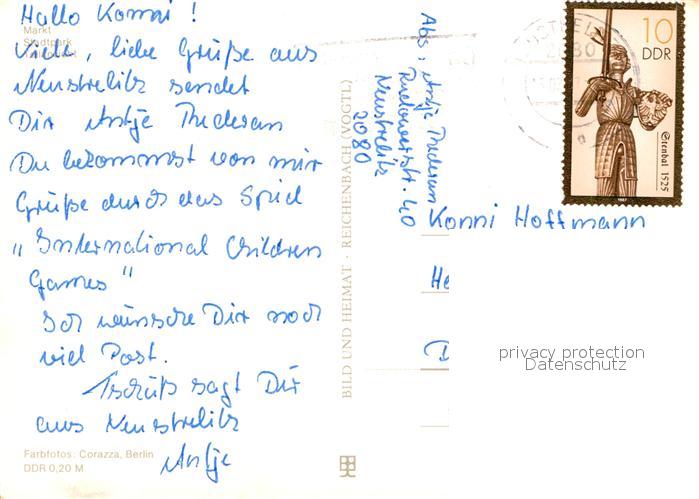 Hallo Konni !
Markt
Stadtpark
Viele, liebe Grüße aus
Neustrelitz sendet
Dir Antje Thuderan
Du bekommst von mir
Grüße durch das Spiel
„International Children
Games"
Ich wünsche Dir noch
viel Post.
Tschüß sagt Dir
aus Neustrelitz
Antje
Farbfotos: Corazza, Berlin
DDR 0,20 M
BILD UND HEIMAT · REICHENBACH (VOGTL)
Abs.: Antje Thuderan
Neustrelitz
2080
10
DDR
Stendal 1525
Konni Hoffmann
He
D
privacy protection
Datenschutz